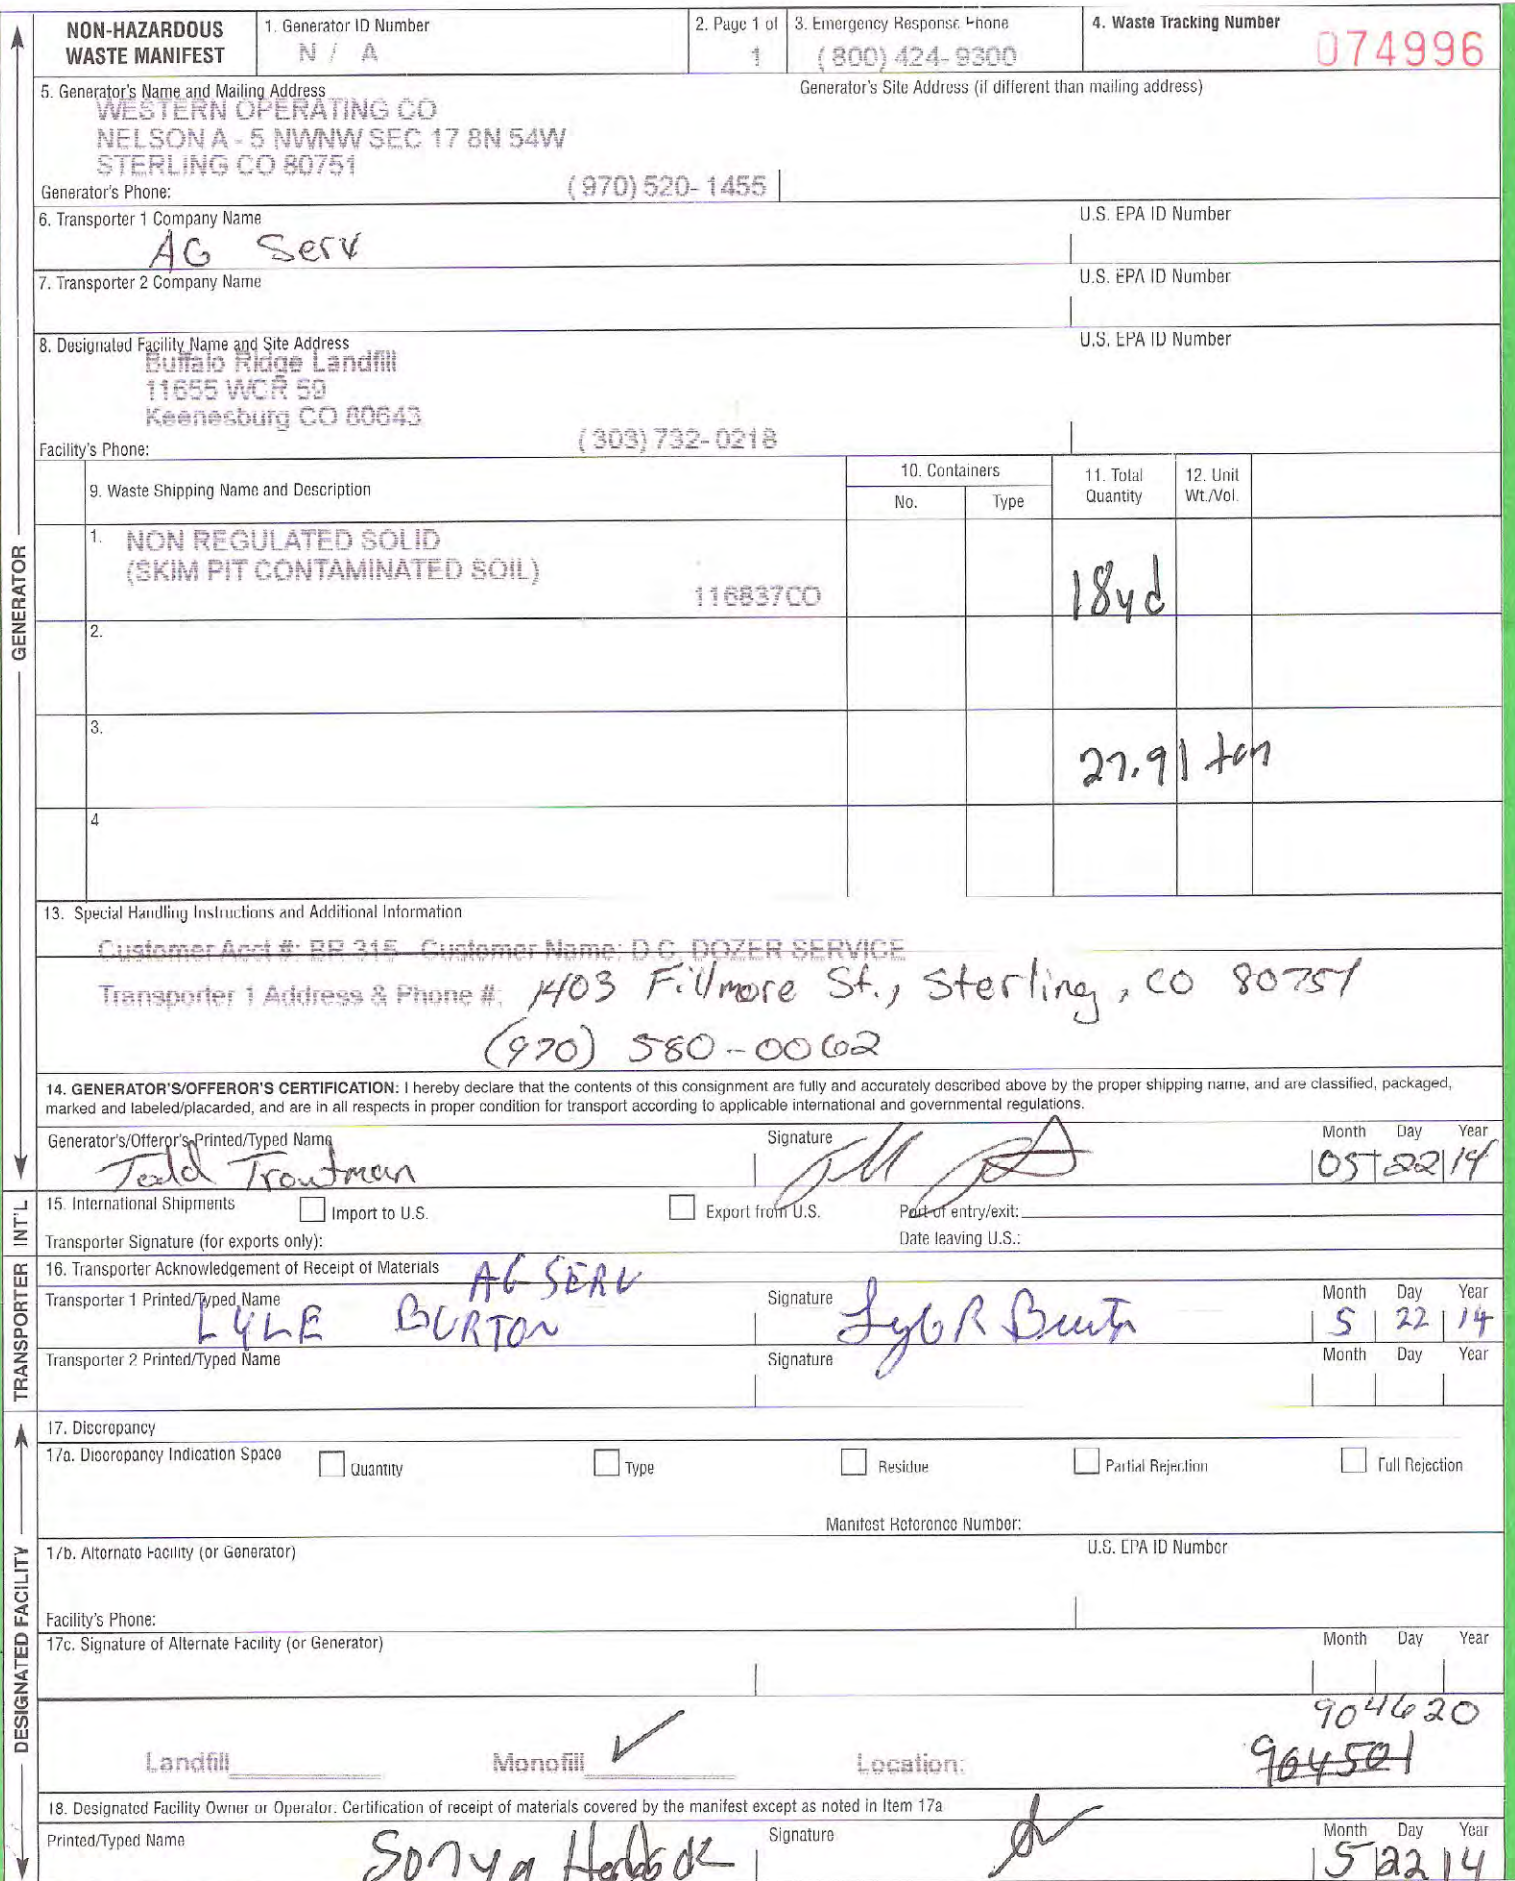 NON-HAZARDOUS WASTE MANIFEST
1. Generator ID Number
N / A
2. Page 1 of
1
3. Emergency Response Phone
(800) 424-9300
4. Waste Tracking Number
074996
5. Generator's Name and Mailing Address
Generator's Site Address (if different than mailing address)
WESTERN OPERATING CO
NELSON A - 5 NWNW SEC 17 8N 54W
STERLING CO 80751
Generator's Phone: (970) 520-1455
6. Transporter 1 Company Name
U.S. EPA ID Number
AG Serv
7. Transporter 2 Company Name
U.S. EPA ID Number
8. Designated Facility Name and Site Address
U.S. EPA ID Number
Buffalo Ridge Landfill
11655 WCR 59
Keenesburg CO 80643
Facility's Phone: (303) 732-0218
9. Waste Shipping Name and Description
10. Containers
No.
Type
11. Total Quantity
12. Unit Wt./Vol.
1. NON REGULATED SOLID
(SKIM PIT CONTAMINATED SOIL)
116837CO
18yd
2.
3.
27.91 ton
4
13. Special Handling Instructions and Additional Information
Customer Acct #: BR 315 Customer Name: D.C. DOZER SERVICE
Transporter 1 Address & Phone #: 1403 Fillmore St., Sterling, CO 80751
(970) 580-0062
14. GENERATOR'S/OFFEROR'S CERTIFICATION: I hereby declare that the contents of this consignment are fully and accurately described above by the proper shipping name, and are classified, packaged,
marked and labeled/placarded, and are in all respects in proper condition for transport according to applicable international and governmental regulations.
Generator's/Offeror's Printed/Typed Name
Signature
Month Day Year
Todd Troutman
05 22 14
15. International Shipments
Import to U.S.
Export from U.S.
Port of entry/exit:
Transporter Signature (for exports only):
Date leaving U.S.:
16. Transporter Acknowledgement of Receipt of Materials
AG SERV
Transporter 1 Printed/Typed Name
Signature
Month Day Year
LYLE BURTON
Lyle R Burton
5 22 14
Transporter 2 Printed/Typed Name
Signature
Month Day Year
17. Discrepancy
17a. Discrepancy Indication Space
Quantity
Type
Residue
Partial Rejection
Full Rejection
Manifest Reference Number:
17b. Alternate Facility (or Generator)
U.S. EPA ID Number
Facility's Phone:
17c. Signature of Alternate Facility (or Generator)
Month Day Year
904620
Landfill
Monofill
Location:
964501
18. Designated Facility Owner or Operator: Certification of receipt of materials covered by the manifest except as noted in Item 17a
Printed/Typed Name
Signature
Month Day Year
Sonya
5 22 14
GENERATOR
INT'L
TRANSPORTER
DESIGNATED FACILITY